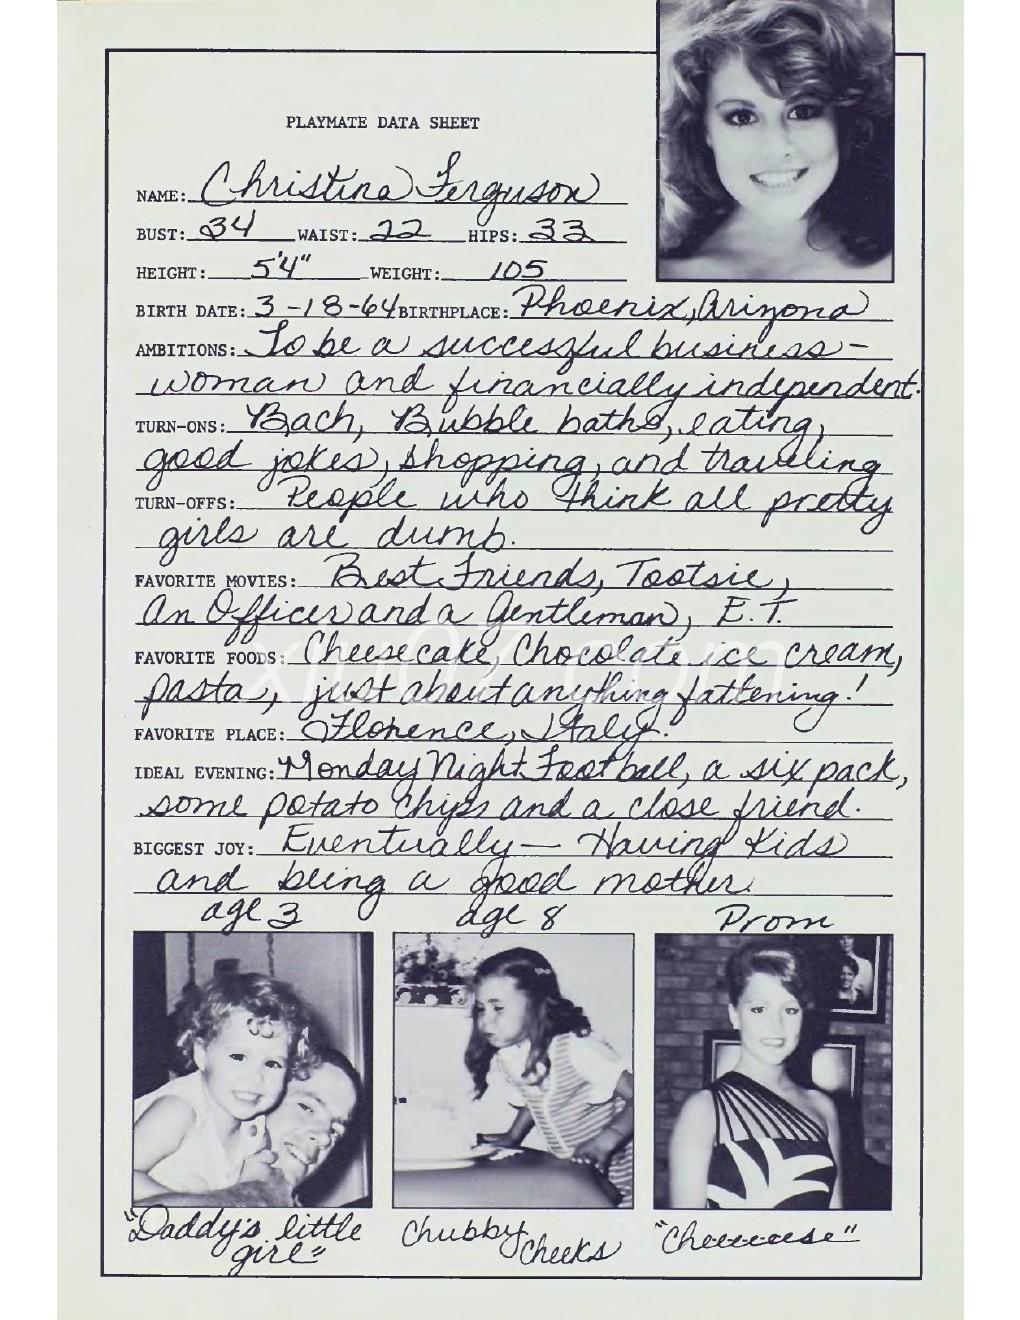 PLAYMATE DATA SHEET
NAME: Christina Ferguson
BUST: 34 WAIST: 22 HIPS: 33
HEIGHT: 5'4" WEIGHT: 105
BIRTH DATE: 3-18-64 BIRTHPLACE: Phoenix, Arizona
AMBITIONS: To be a successful business-
woman and financially independent.
TURN-ONS: Bach, Bubble baths, eating,
good jokes, shopping, and traveling
TURN-OFFS: People who think all pretty
girls are dumb.
FAVORITE MOVIES: Best Friends, Tootsie,
An Officer and a Gentleman, E.T.
FAVORITE FOODS: Cheesecake, Chocolate ice cream,
pasta, just about anything fattening!
FAVORITE PLACE: Florence, Italy.
IDEAL EVENING: Monday Night Football, a six pack,
some potato chips and a close friend.
BIGGEST JOY: Eventually— Having Kids
and being a good mother.
age 3 age 8 Prom
"Daddy's little girl" Chubby Cheeks "Cheeeeese"